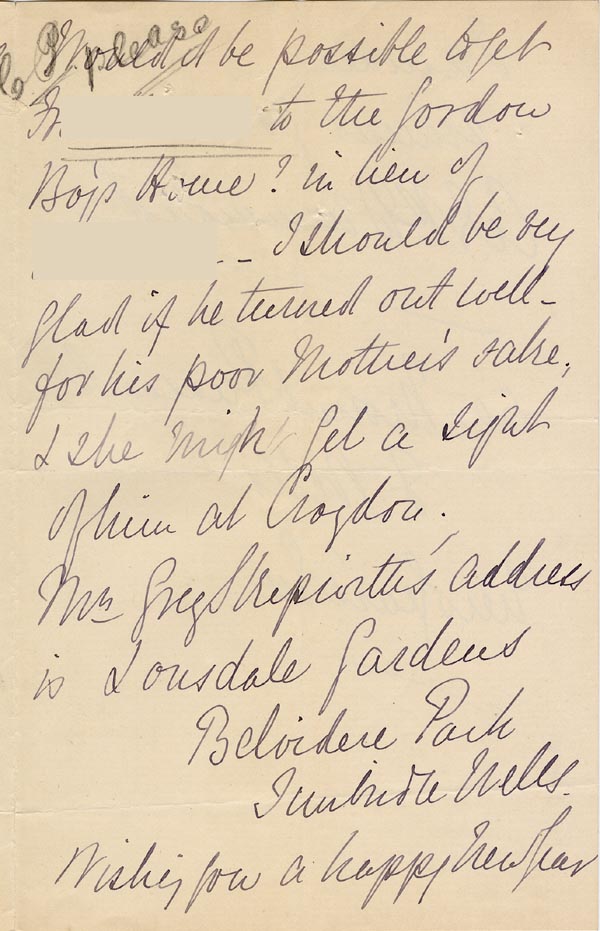 please
Would it be possible to get
Fr. to the Gordon
Boys Home? in lieu of
-- I should be very
glad if he turned out well -
for his poor Mother's sake,
& she might get a sight
of him at Croydon.
Mrs Greg address
is Lonsdale Gardens
Belvidere Park
Tunbridge Wells.
Wishing you a happy New Year